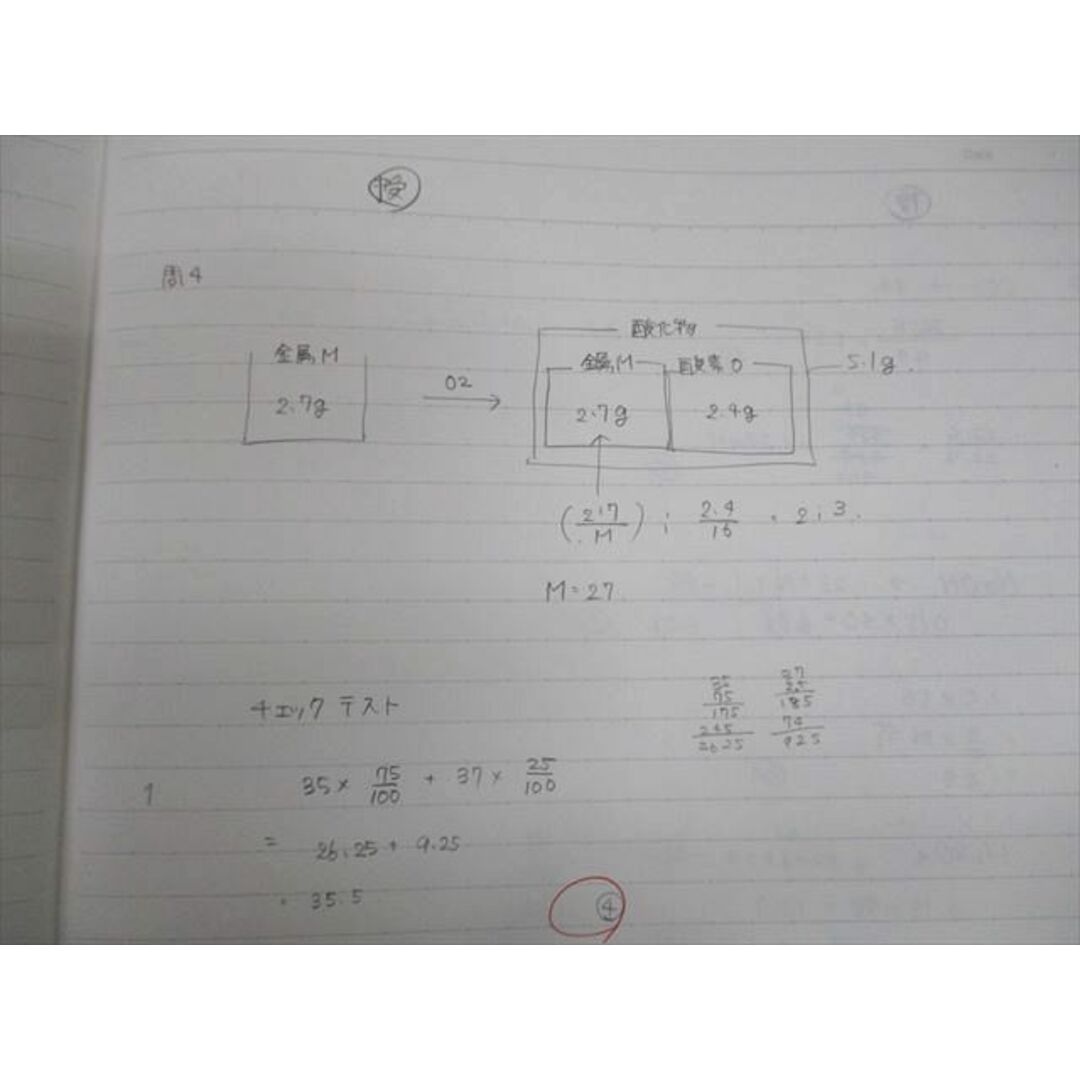 授
問4
酸化物
金属M
金属M 酸素O
5.1g.
2.7g
O2
2.7g
2.4g
(2.7/M) : 2.4/16 = 2:3.
M=27
チェックテスト
1
35× 75/100 + 37× 25/100
= 26.25+ 9.25
= 35.5
④
75
175
245
2625
37
25
185
74
925